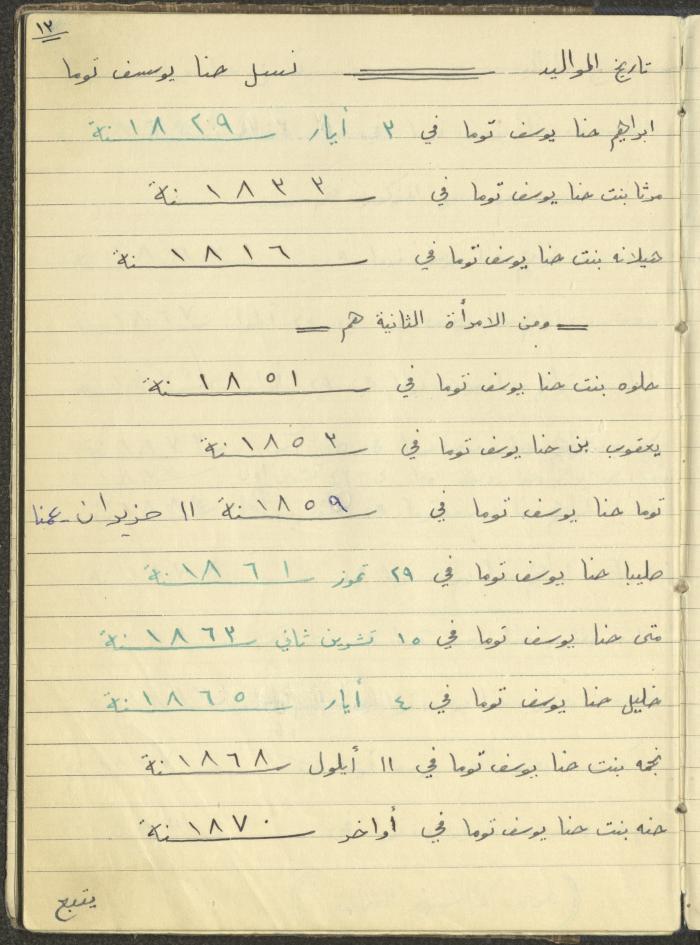 ١٣
تاريخ المواليد نسل حنا يوسف توما
ابراهيم حنا يوسف توما في ٣ أيار سنة ١٨٢٩
مرتا بنت حنا يوسف توما في سنة ١٨٣٣
هيلانه بنت حنا يوسف توما في سنة ١٨١٦
ومن الامرأة الثانية هم
حلوه بنت حنا يوسف توما في سنة ١٨٥١
يعقوب بن حنا يوسف توما في سنة ١٨٥٣
توما حنا يوسف توما في سنة ١٨٥٩ ١١ حزيران - عمنا
صليبا حنا يوسف توما في ٢٩ تموز سنة ١٨٦١
متى حنا يوسف توما في ١٥ تشرين ثاني سنة ١٨٦٣
خليل حنا يوسف توما في ٤ أيار سنة ١٨٦٥
نجمه بنت حنا يوسف توما في ١١ أيلول سنة ١٨٦٨
حنه بنت حنا يوسف توما في أواخر سنة ١٨٧٠
يتبع